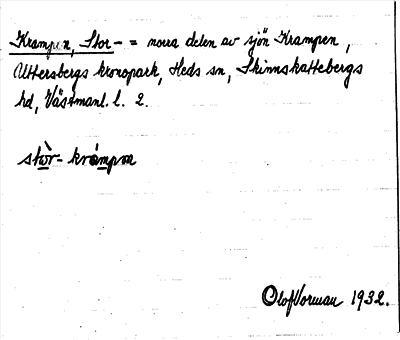 Krampen, Stor- = norra delen av sjön Krampen,
Uttersbergs kronopark, Heds sn, Skinnskattebergs
hd, Västmanl. l. 2.
stòr- krámpɐ
Olof Vorman 1932.